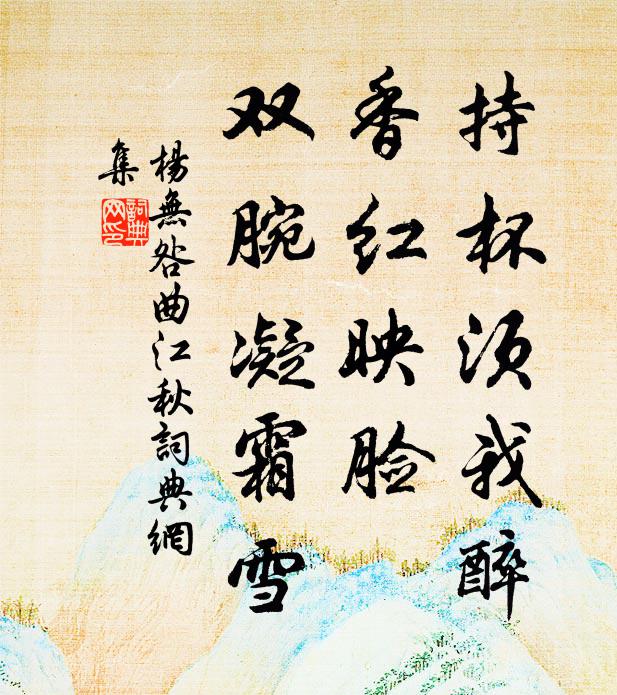 持杯须我醉
香红映脸
双腕凝霜雪
楊無咎曲江秋詞典網
集
詞典
网印